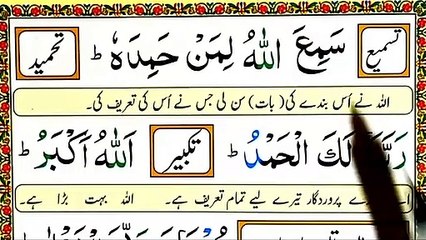 تسمیع سَمِعَ اللّٰهُ لِمَنْ حَمِدَهٗ ؕ تحمید
اللہ نے اُس بندے کی (بات) سن لی جس نے اُس کی تعریف کی۔
لَكَ الْحَمْدُ ؕ تکبیر اَللّٰهُ اَكْبَرُ ؕ
پروردگار تیرے لیے تمام تعریف ہے۔ اللہ بہت بڑا ہے۔